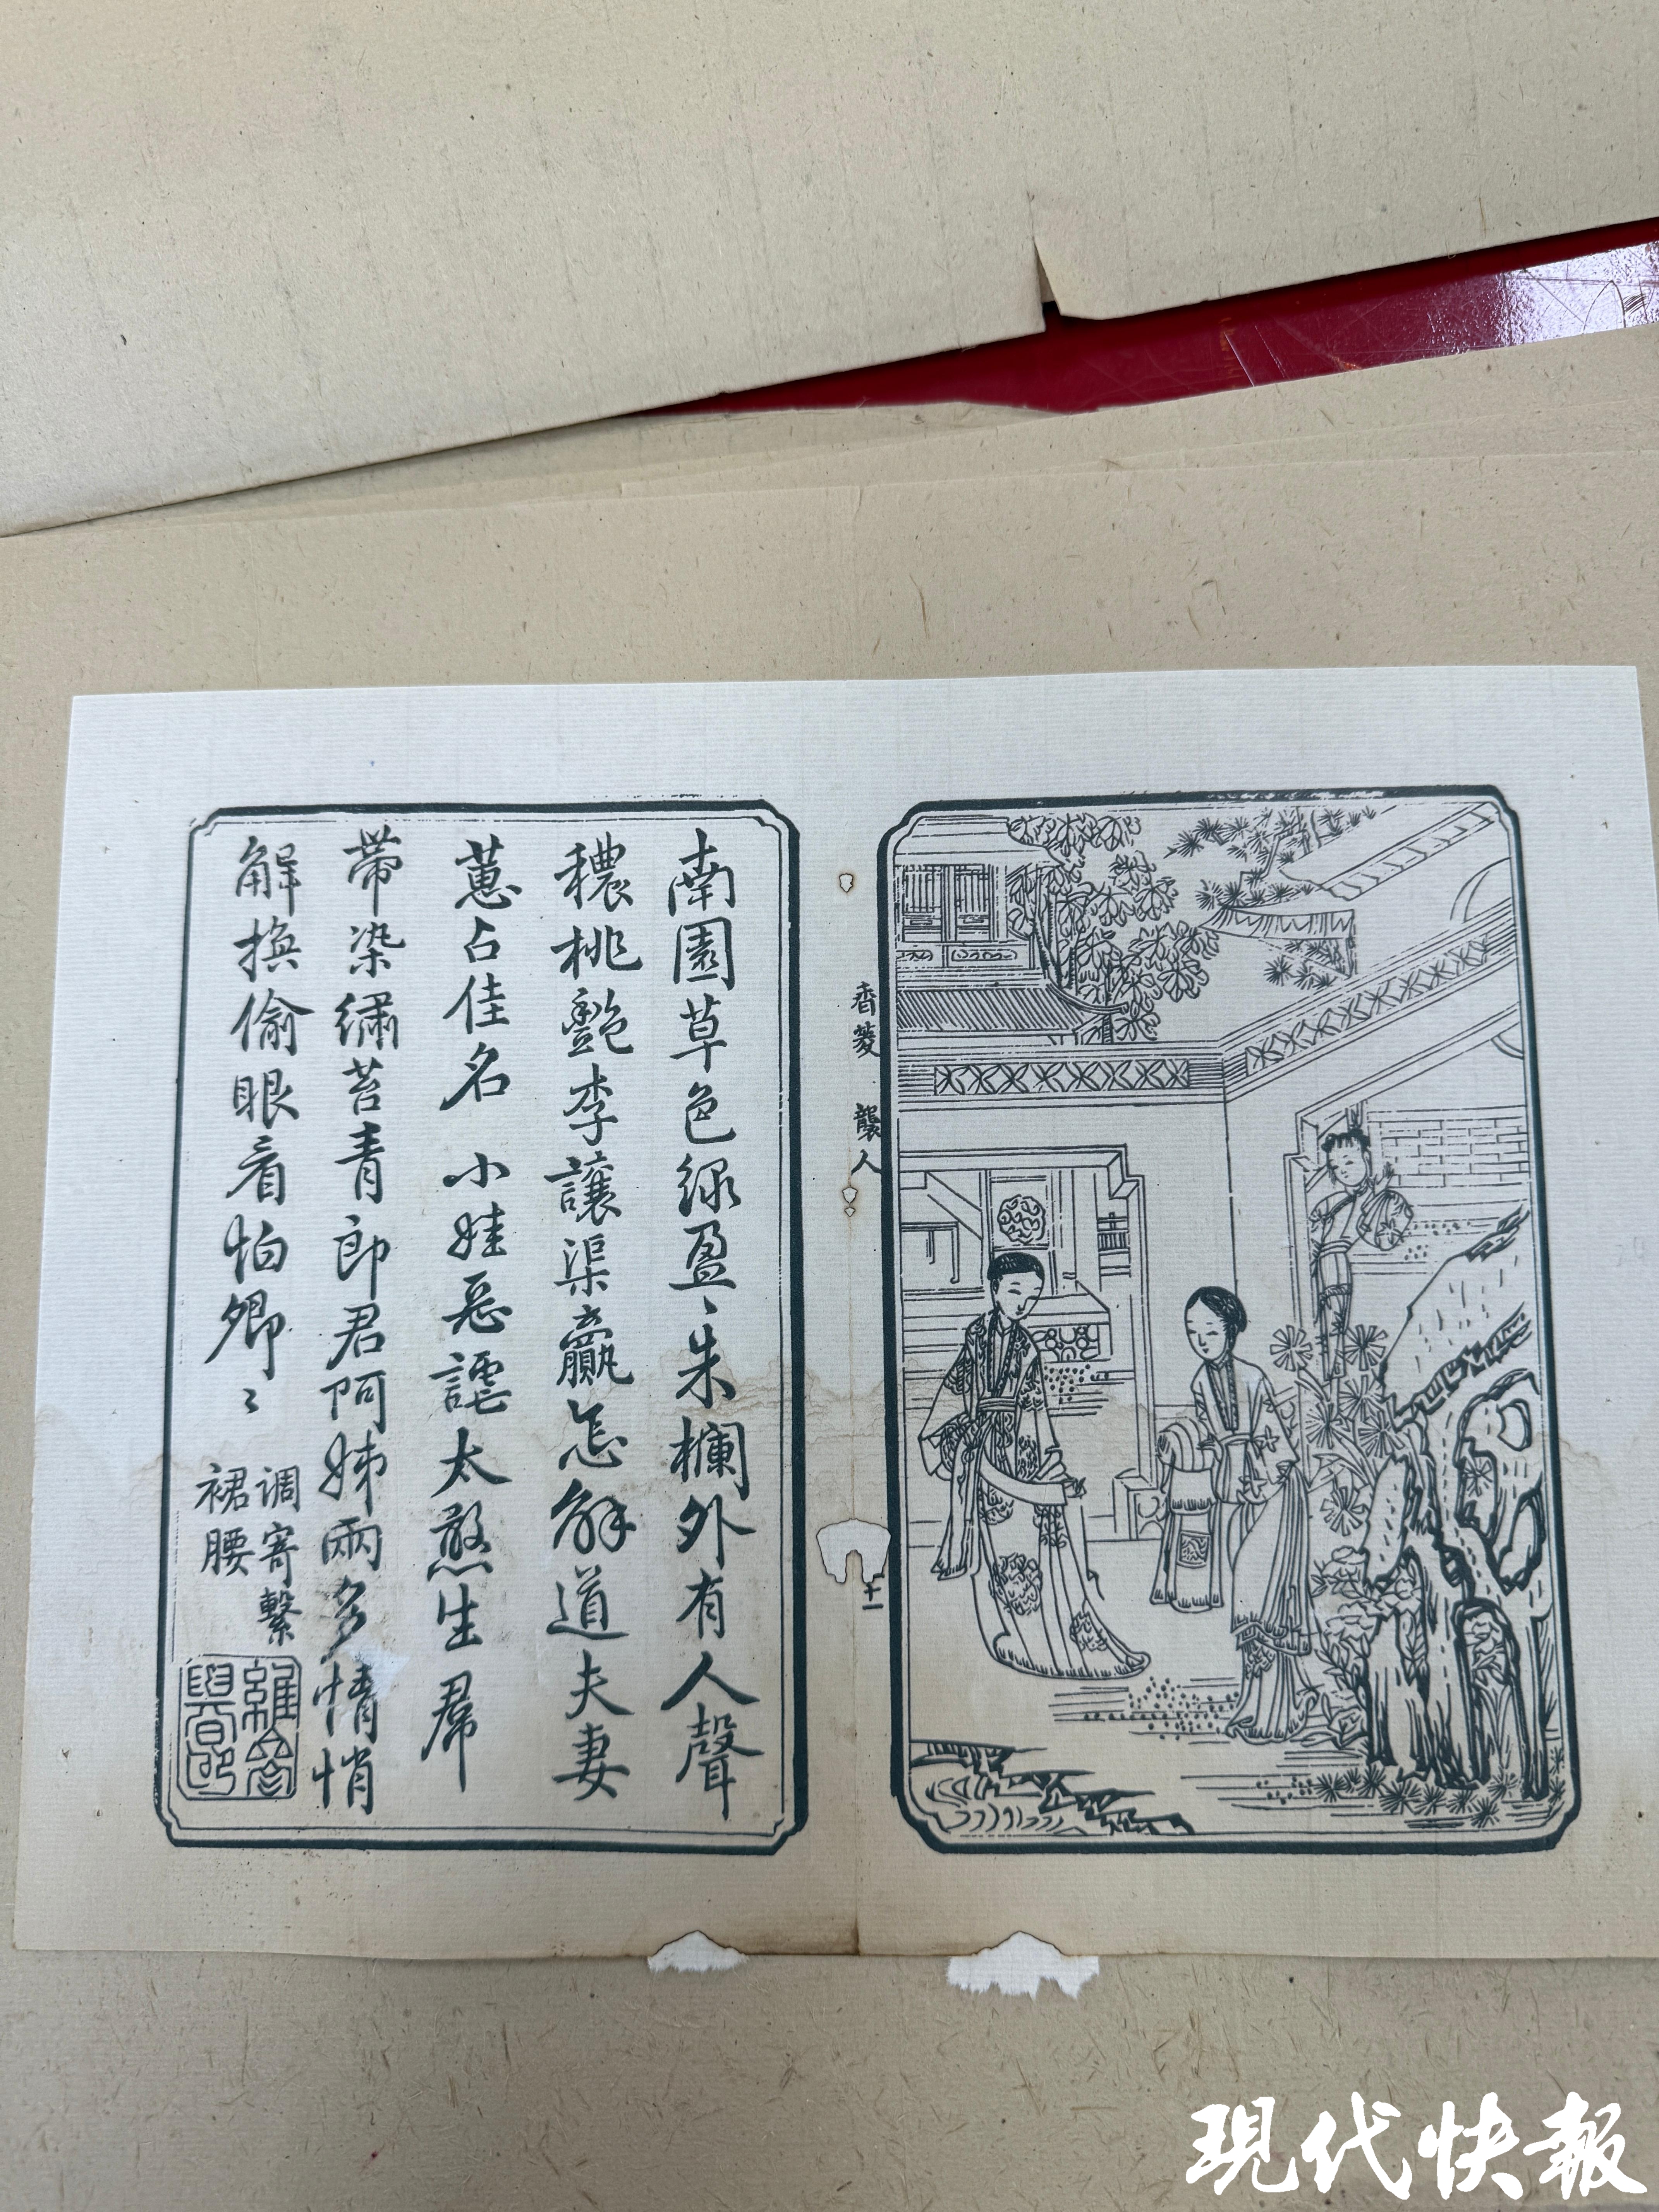 香菱 襲人
南園草色绿盈〻朱欄外有人聲
穠桃艷李讓渠贏怎解道夫妻
蕙占佳名 小娃惡謔太憨生帬
帶染繡苔青郎君阿姊兩多情悄
解換偷眼看怕卿〻
调寄繫
裙腰
現代快報